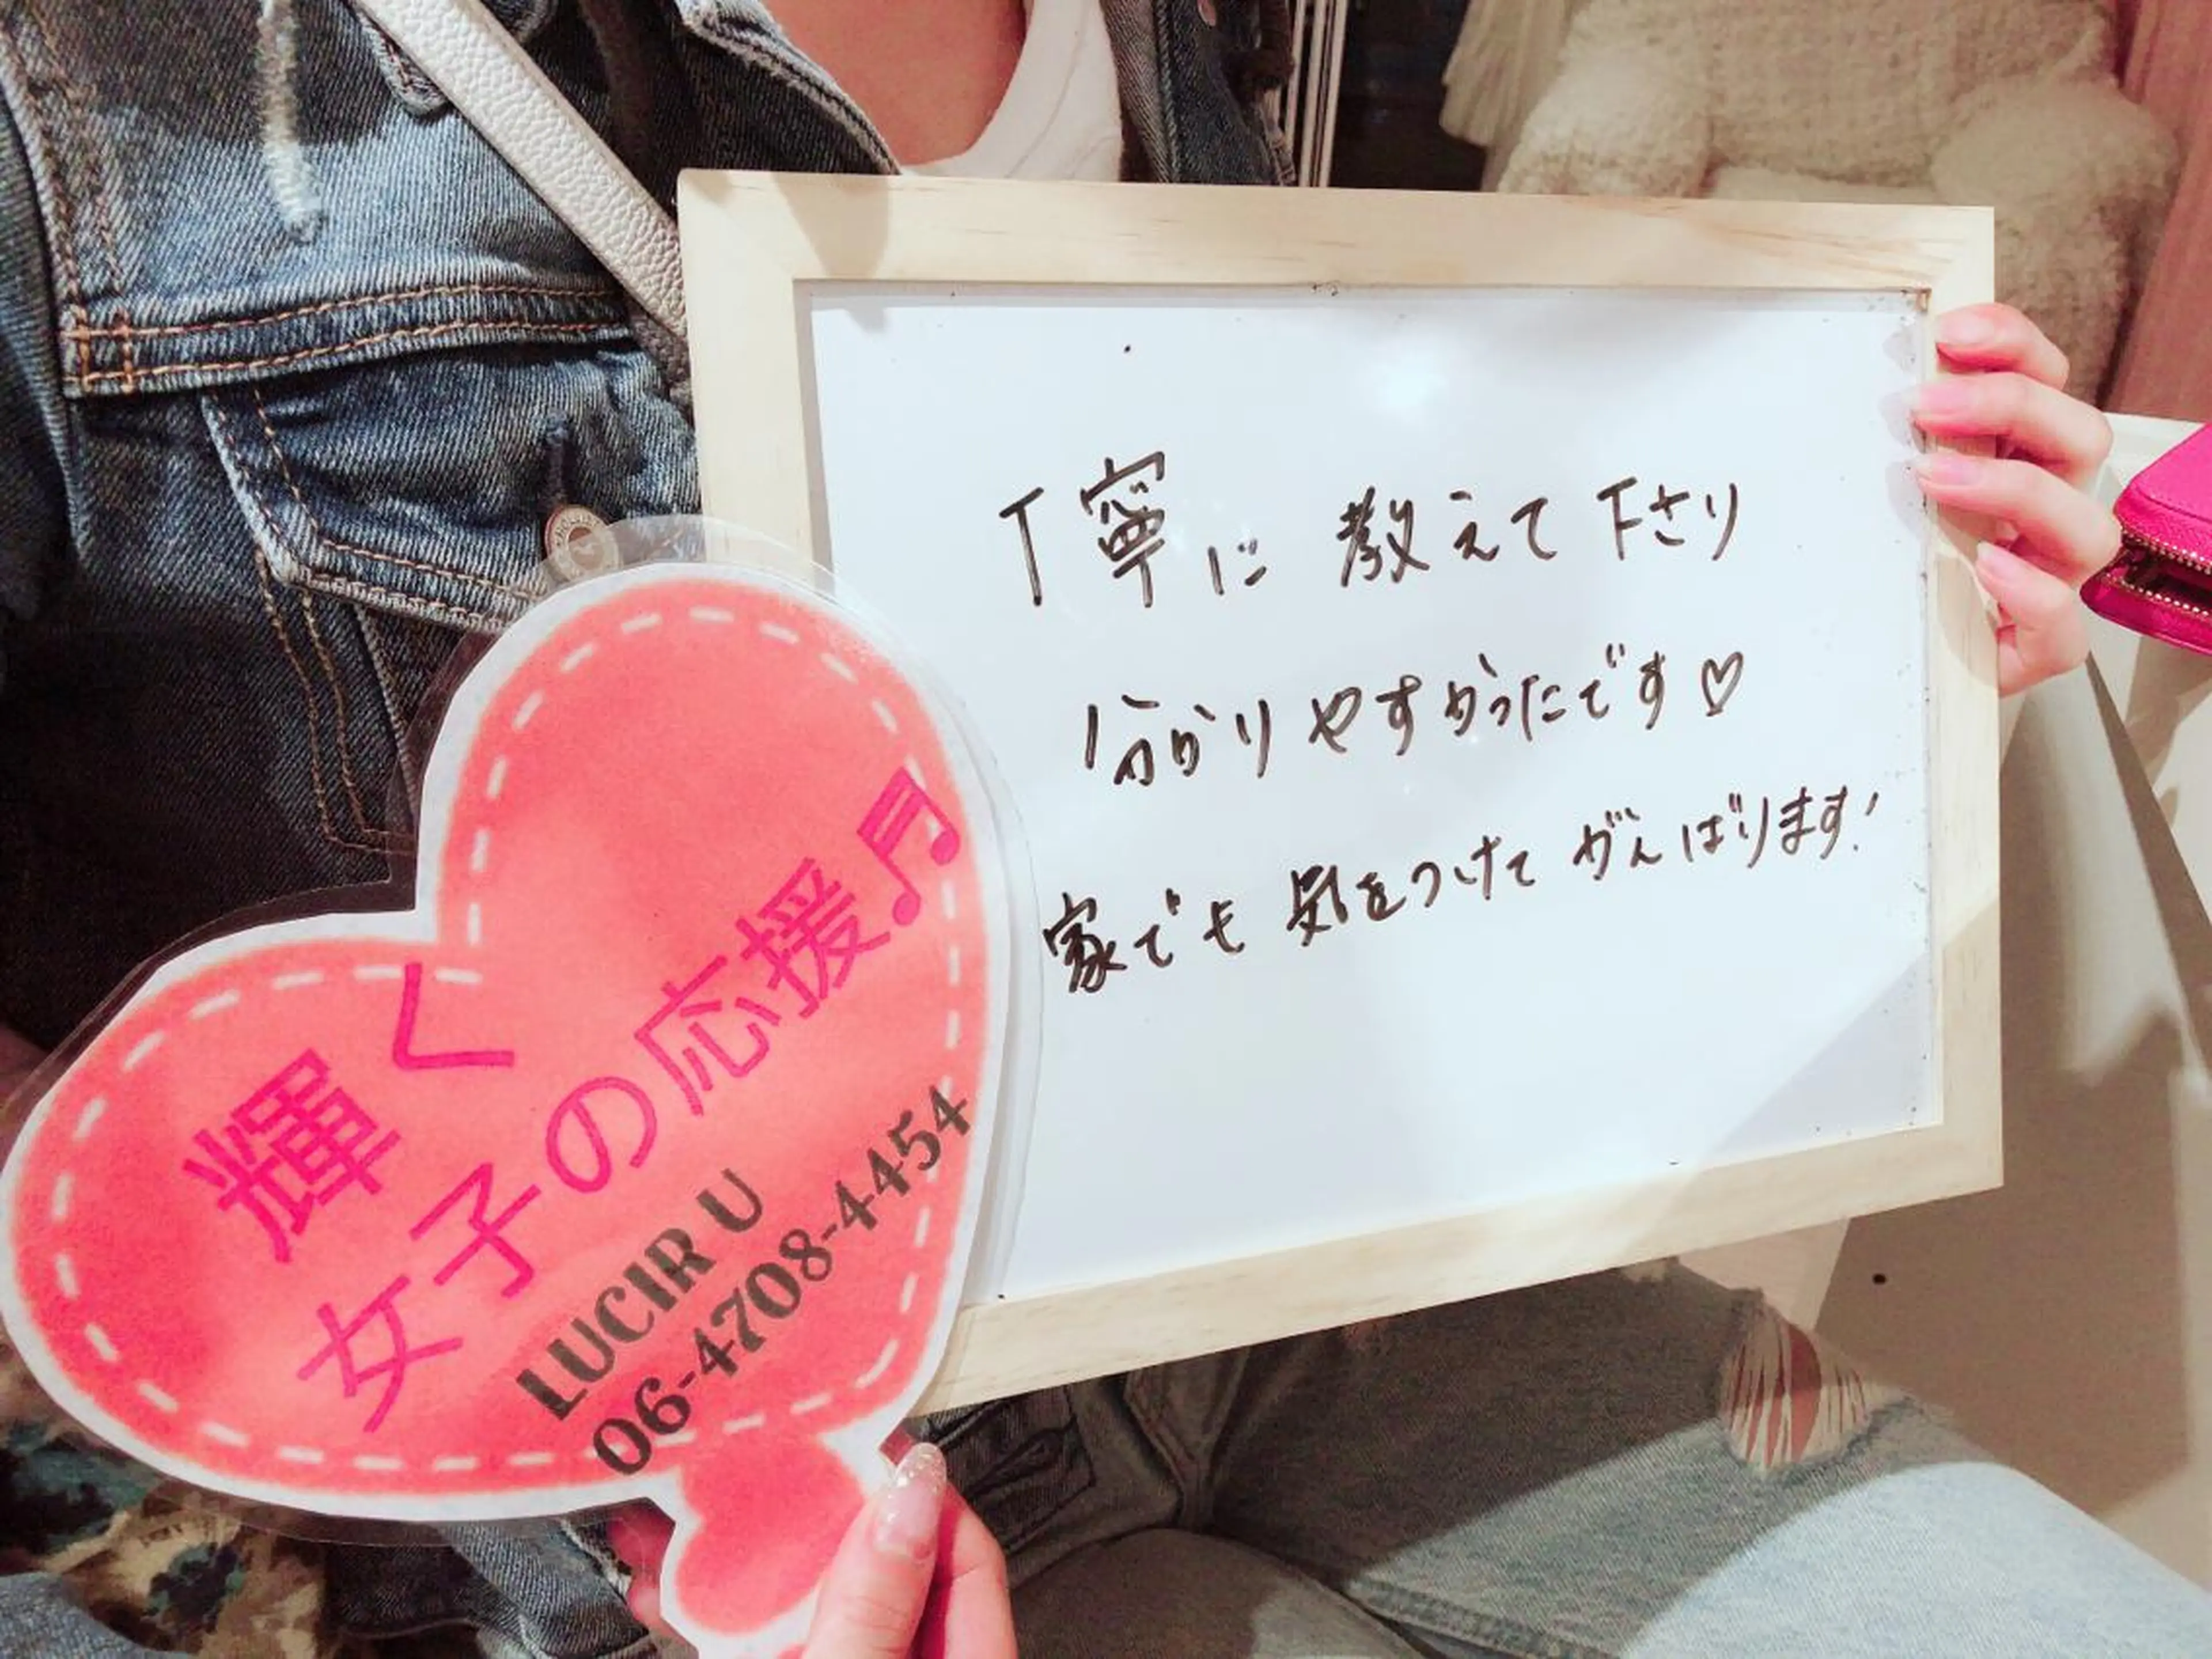 丁寧に教えて下さり
分かりやすかったです♡
家でも気をつけてがんばります!
輝く
女子の応援♬
LUCIR U
06-4708-4454